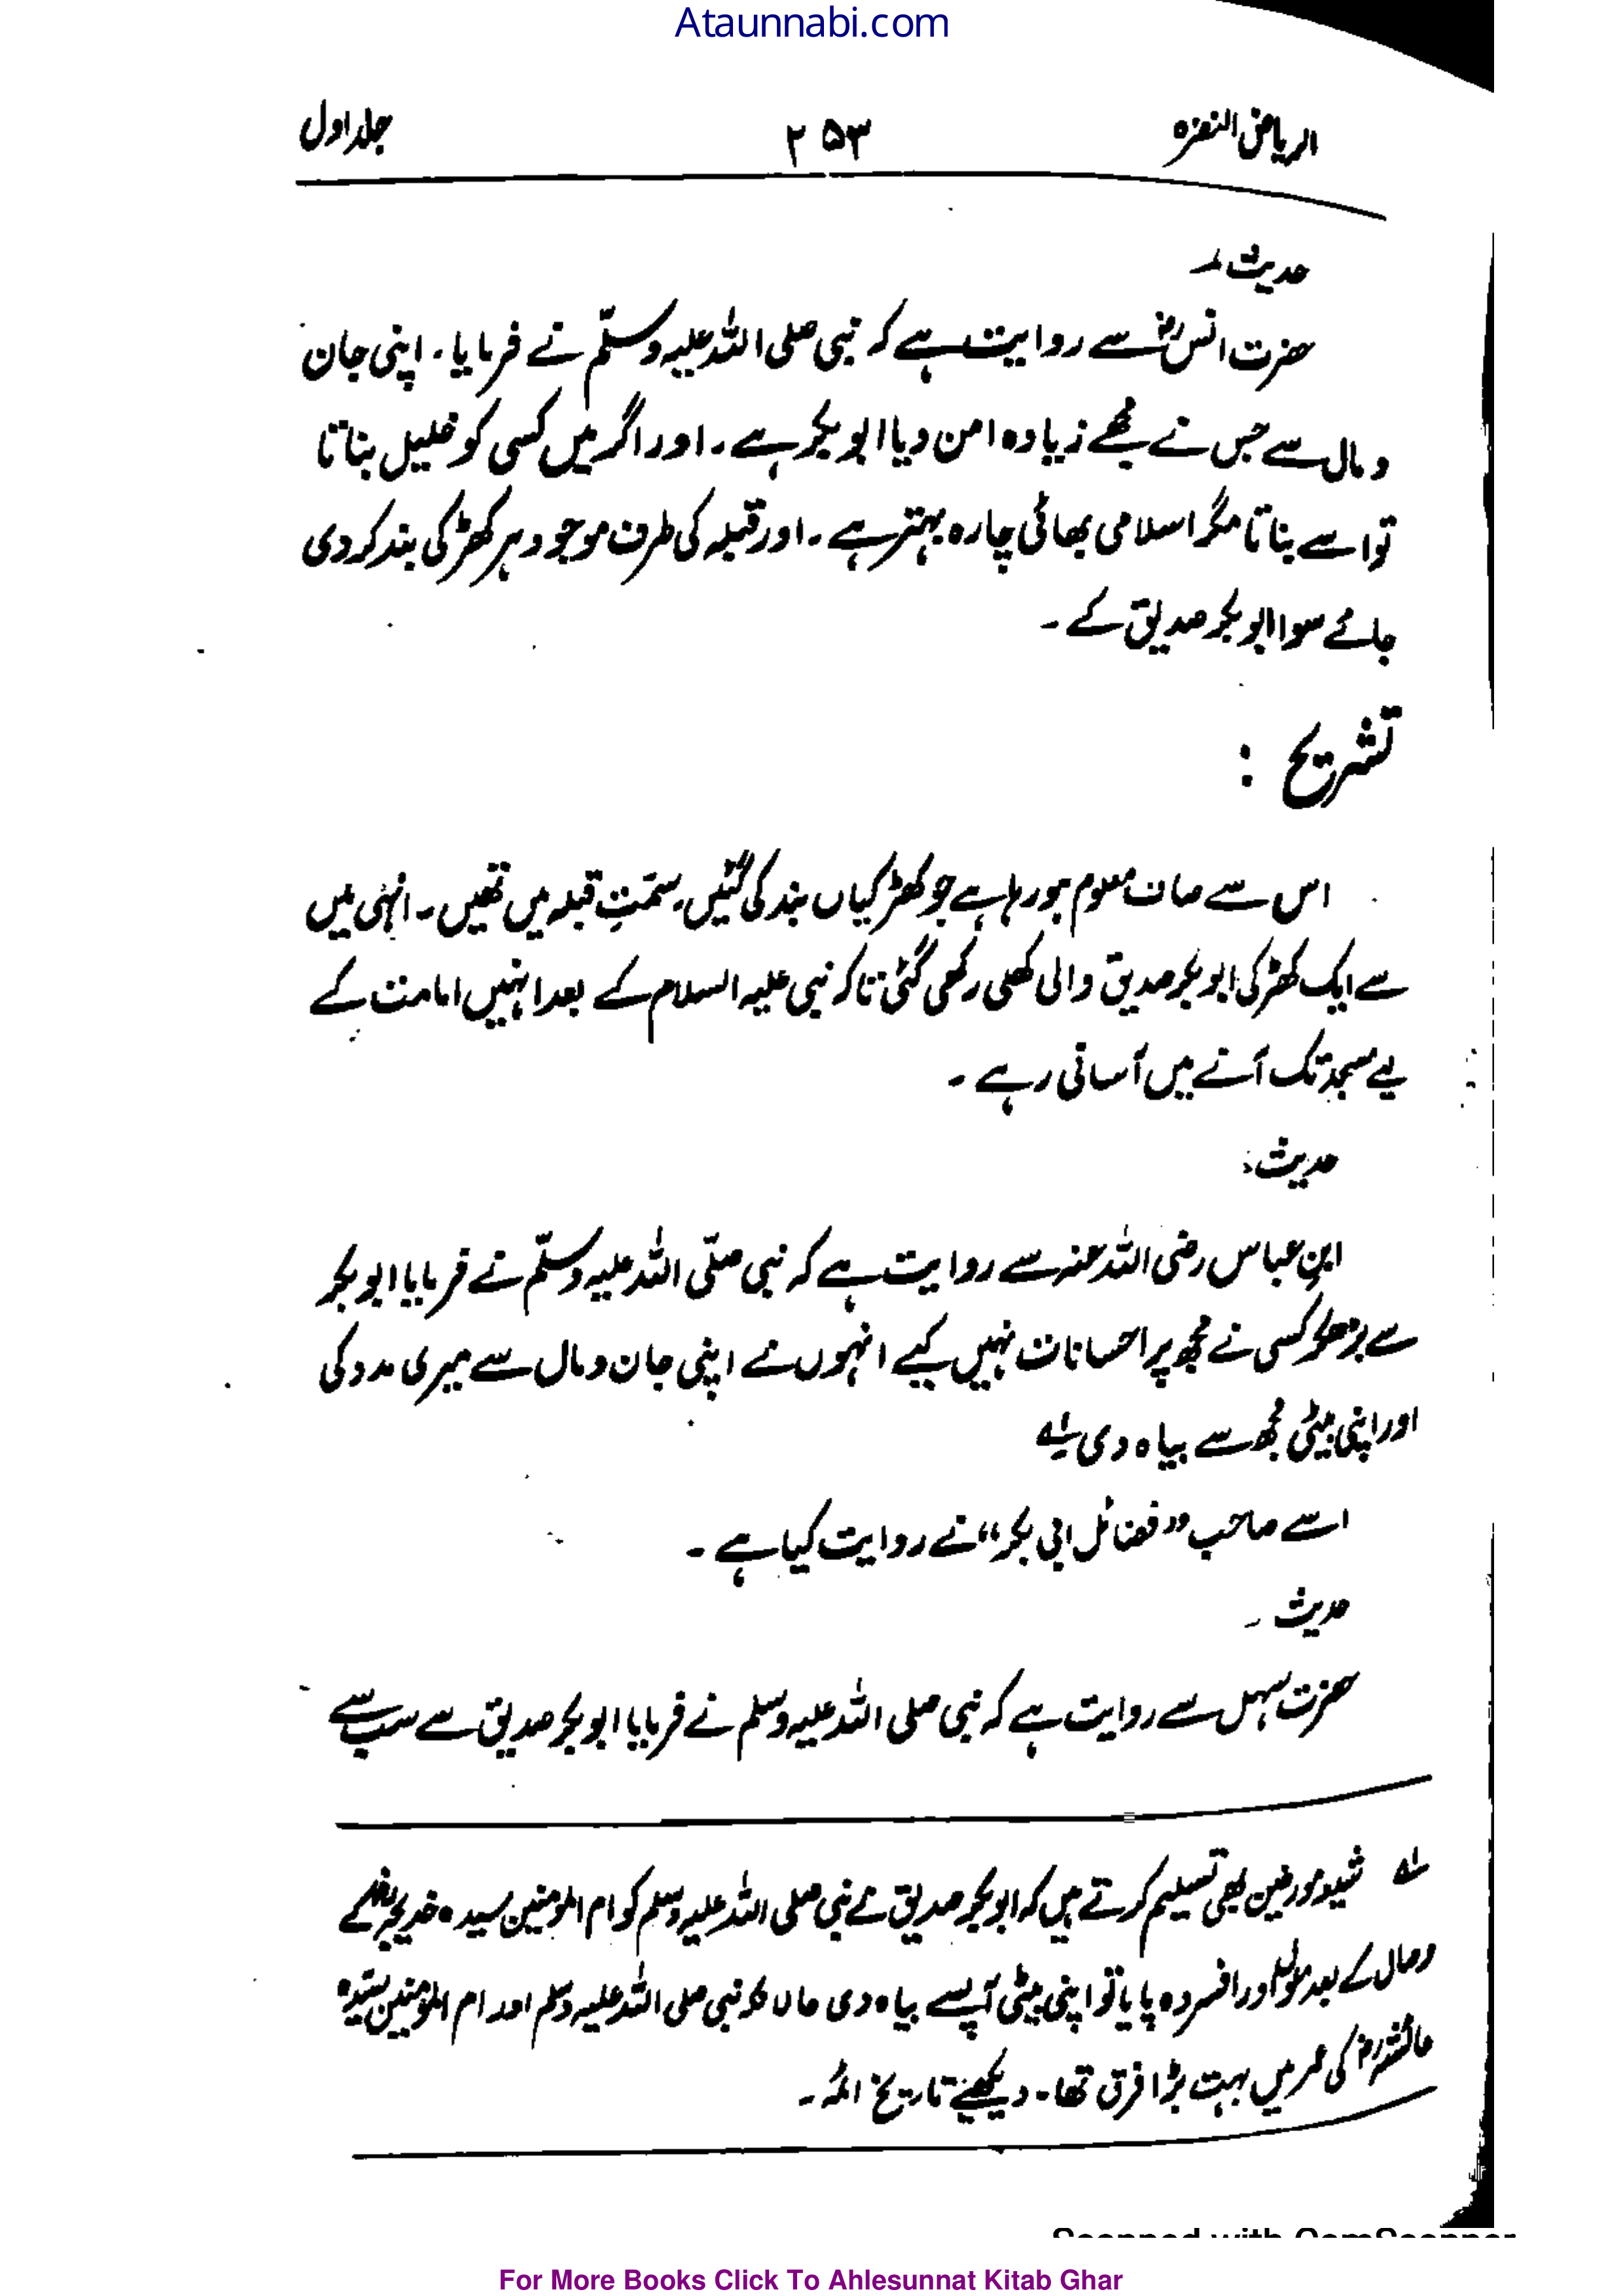 Ataunnabi.com
الریاض النضرہ ۲۵۳ جلد اول
حدیث:
حضرت انسؓ سے روایت ہے کہ نبی صلی اللہ علیہ وسلّم نے فرمایا۔ اپنی جان
و مال سے جس نے مجھے زیادہ امن دیا ابوبکر ہے۔ اور اگر میں کسی کو خلیل بناتا
تو اسے بناتا مگر اسلامی بھائی چارہ بہتر ہے۔ اور قبلہ کی طرف موجود ہر کھڑکی بند کر دی
جائے سوا ابوبکر صدیق کے۔
تشریح :
اس سے صاف معلوم ہو رہا ہے جو کھڑکیاں بند کی گئیں۔ سمتِ قبلہ میں تھیں۔ انہی میں
سے ایک کھڑکی ابوبکر صدیق والی کھلی رکھی گئی تاکہ نبی علیہ السلام کے بعد انہیں امامت کے
لیے مسجد تک آنے میں آسانی رہے۔
حدیث:
ابنِ عباس رضی اللہ عنہ سے روایت ہے کہ نبی صلّی اللہ علیہ وسلّم نے فرمایا ابوبکر
سے بڑھ کر کسی نے مجھ پر احسانات نہیں کیے انہوں نے اپنی جان و مال سے میری مدد کی
اور اپنی بیٹی مجھ سے بیاہ دی۔ لہ
اسے صاحب ”فضائل ابی بکر“ نے روایت کیا ہے۔
حدیث ۔
حضرت سہل سے روایت ہے کہ نبی صلی اللہ علیہ وسلم نے فرمایا ابوبکر صدیق سے سب سے
لہ شیعہ مورخین بھی تسلیم کرتے ہیں کہ ابوبکر صدیق نے نبی صلی اللہ علیہ وسلم کو ام المؤمنین سیدہ خدیجہؓ کے
وصال کے بعد ملول اور افسردہ پایا تو اپنی بیٹی آپ سے بیاہ دی حالانکہ نبی صلی اللہ علیہ وسلم اور ام المؤمنین سیّدہ
عائشہؓ کی عمر میں بہت بڑا فرق تھا۔ دیکھئے تاریخ ائمہ۔
Scanned with CamScanner
For More Books Click To Ahlesunnat Kitab Ghar